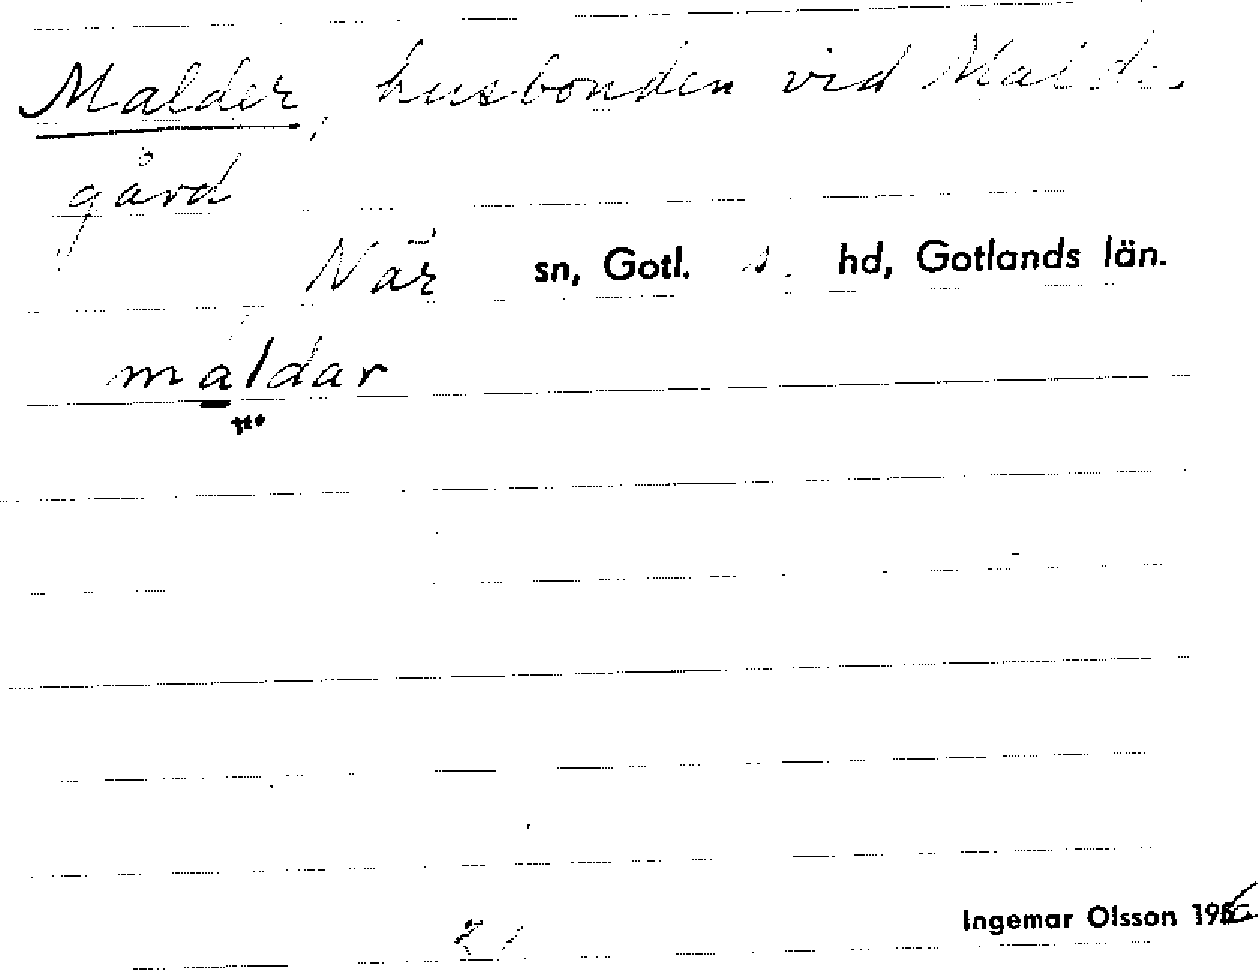 Malder, husbonden vid Malde
gård
När sn, Gotl. s. hd, Gotlands län.
maldar
Ingemar Olsson 1956